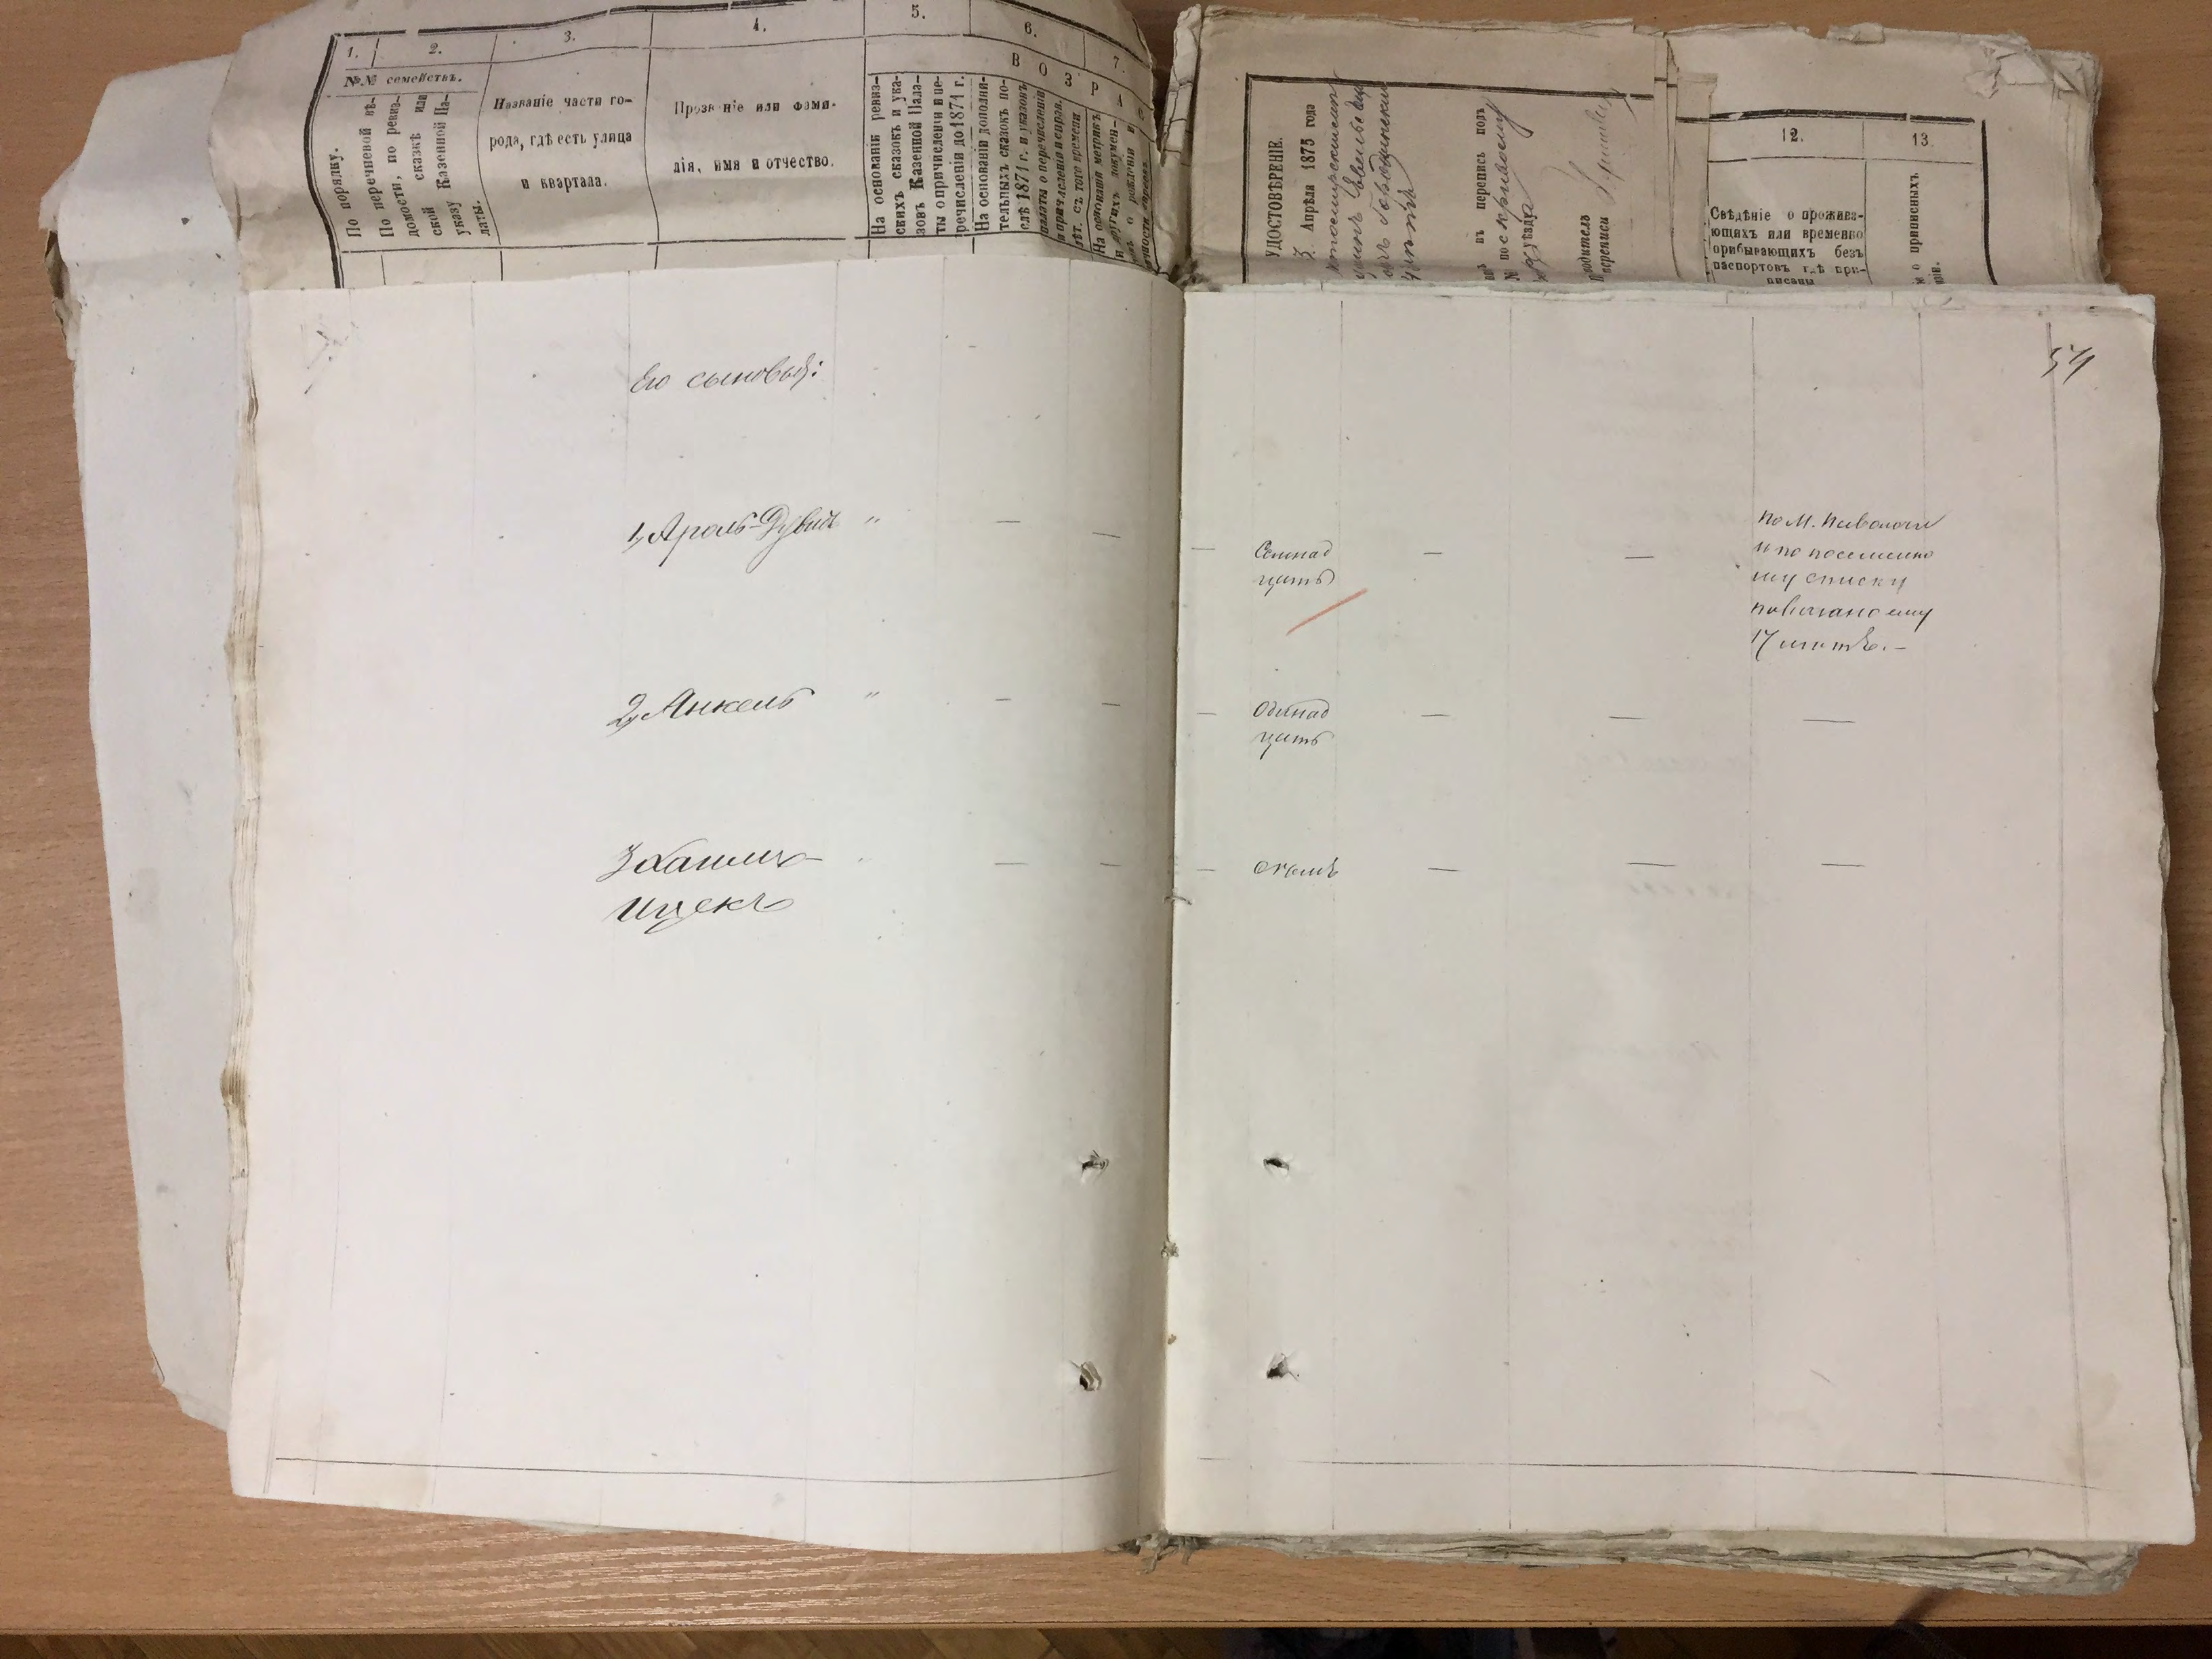 1.
2.
3.
4.
5.
6.
7.
№№ семействъ.
В О З Р А С
По порядку.
По перечневой вѣ-
домости, по ревиз-
ской сказкѣ или
указу Казенной Па-
латы.
Названіе части го-
рода, гдѣ есть улица
и квартала.
Прозваніе или фами-
лія, имя и отчество.
На основаніи ревиз-
скихъ сказокъ и ука-
зовъ Казенной Пала-
ты о причисленіи и пе-
речисленіи до 1871 г.
На основаніи дополни-
тельныхъ сказокъ по-
слѣ 1871 г. и указовъ
палаты о перечисленіи
и причисленіи и справ.
лѣт. съ того времени
На основаніи метрикъ
и другихъ докумен-
о рожденіи и
УДОСТОВѢРЕНІЕ.
3 Апрѣля 1875 года
въ перепись подъ
№ по
уѣзда
переписи
12.
13.
Свѣдѣніе о прожива-
ющихъ или временно
прибывающихъ безъ
паспортовъ гдѣ при-
писаны
о приписныхъ
54
Его сыновья:
1, Аронъ-Дувидъ "
Семнад
цать
по М.
и по посемейно
му списку
показано ему
17 лѣтъ. –
2, Янкель "
Одинад
цать
3 Хаимъ-
Ицекъ
осемь